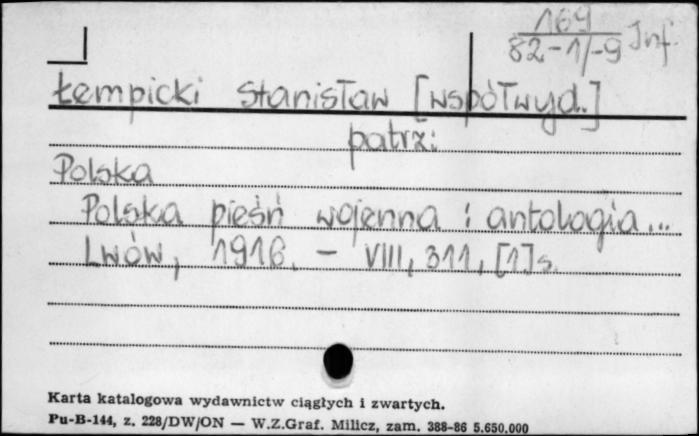 169
82-1/-9 Inf.
Łempicki Stanisław [współwyd.]
patrz:
Polska
Polska pieśń wojenna : antologia...
Lwów, 1916. - VIII, 311, [1] s.
Karta katalogowa wydawnictw ciągłych i zwartych.
Pu-B-144, z. 228/DW/ON — W.Z.Graf. Milicz, zam. 388-86 5.650.000